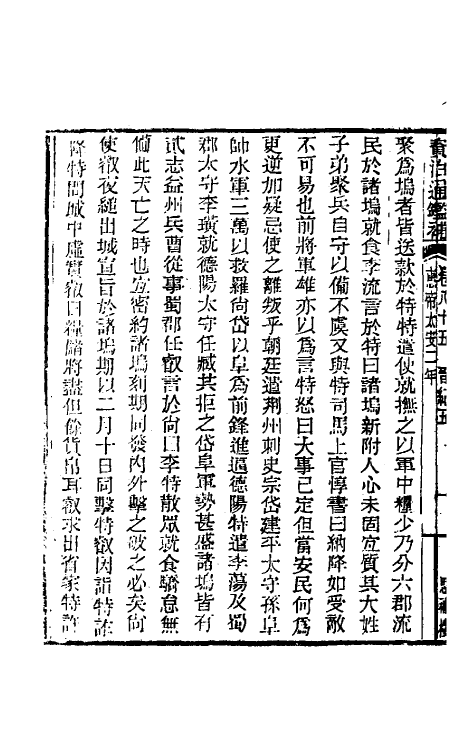 資治通鑑補 卷八十五 晉紀五
惠帝太安二年
聚爲塢者皆送款於特特遣使就撫之以軍中糧少乃分六郡流
民於諸塢就食李流言於特曰諸塢新附人心未固宜質其大姓
子弟聚兵自守以備不虞又與特司馬上官惇書曰納降如受敵
不可易也前將軍雄亦以爲言特怒曰大事已定但當安民何爲
更逆加疑忌使之離叛乎朝廷遣荆州刺史宗岱建平太守孫阜
帥水軍三萬以救羅尚岱以阜爲前鋒進逼德陽特遣李蕩及蜀
郡太守李璜就德陽太守任臧共拒之岱阜軍勢甚盛諸塢皆有
貳志益州兵曹從事蜀郡任叡言於尚曰李特散眾就食驕怠無
備此天亡之時也宜密約諸塢刻期同發內外擊之破之必矣尚
使叡夜縋出城宣旨於諸塢期以二月十日同擊特叡因詣特詐
降特問城中虛實叡曰糧儲將盡但餘貨帛耳叡求出省家特許
思補樓